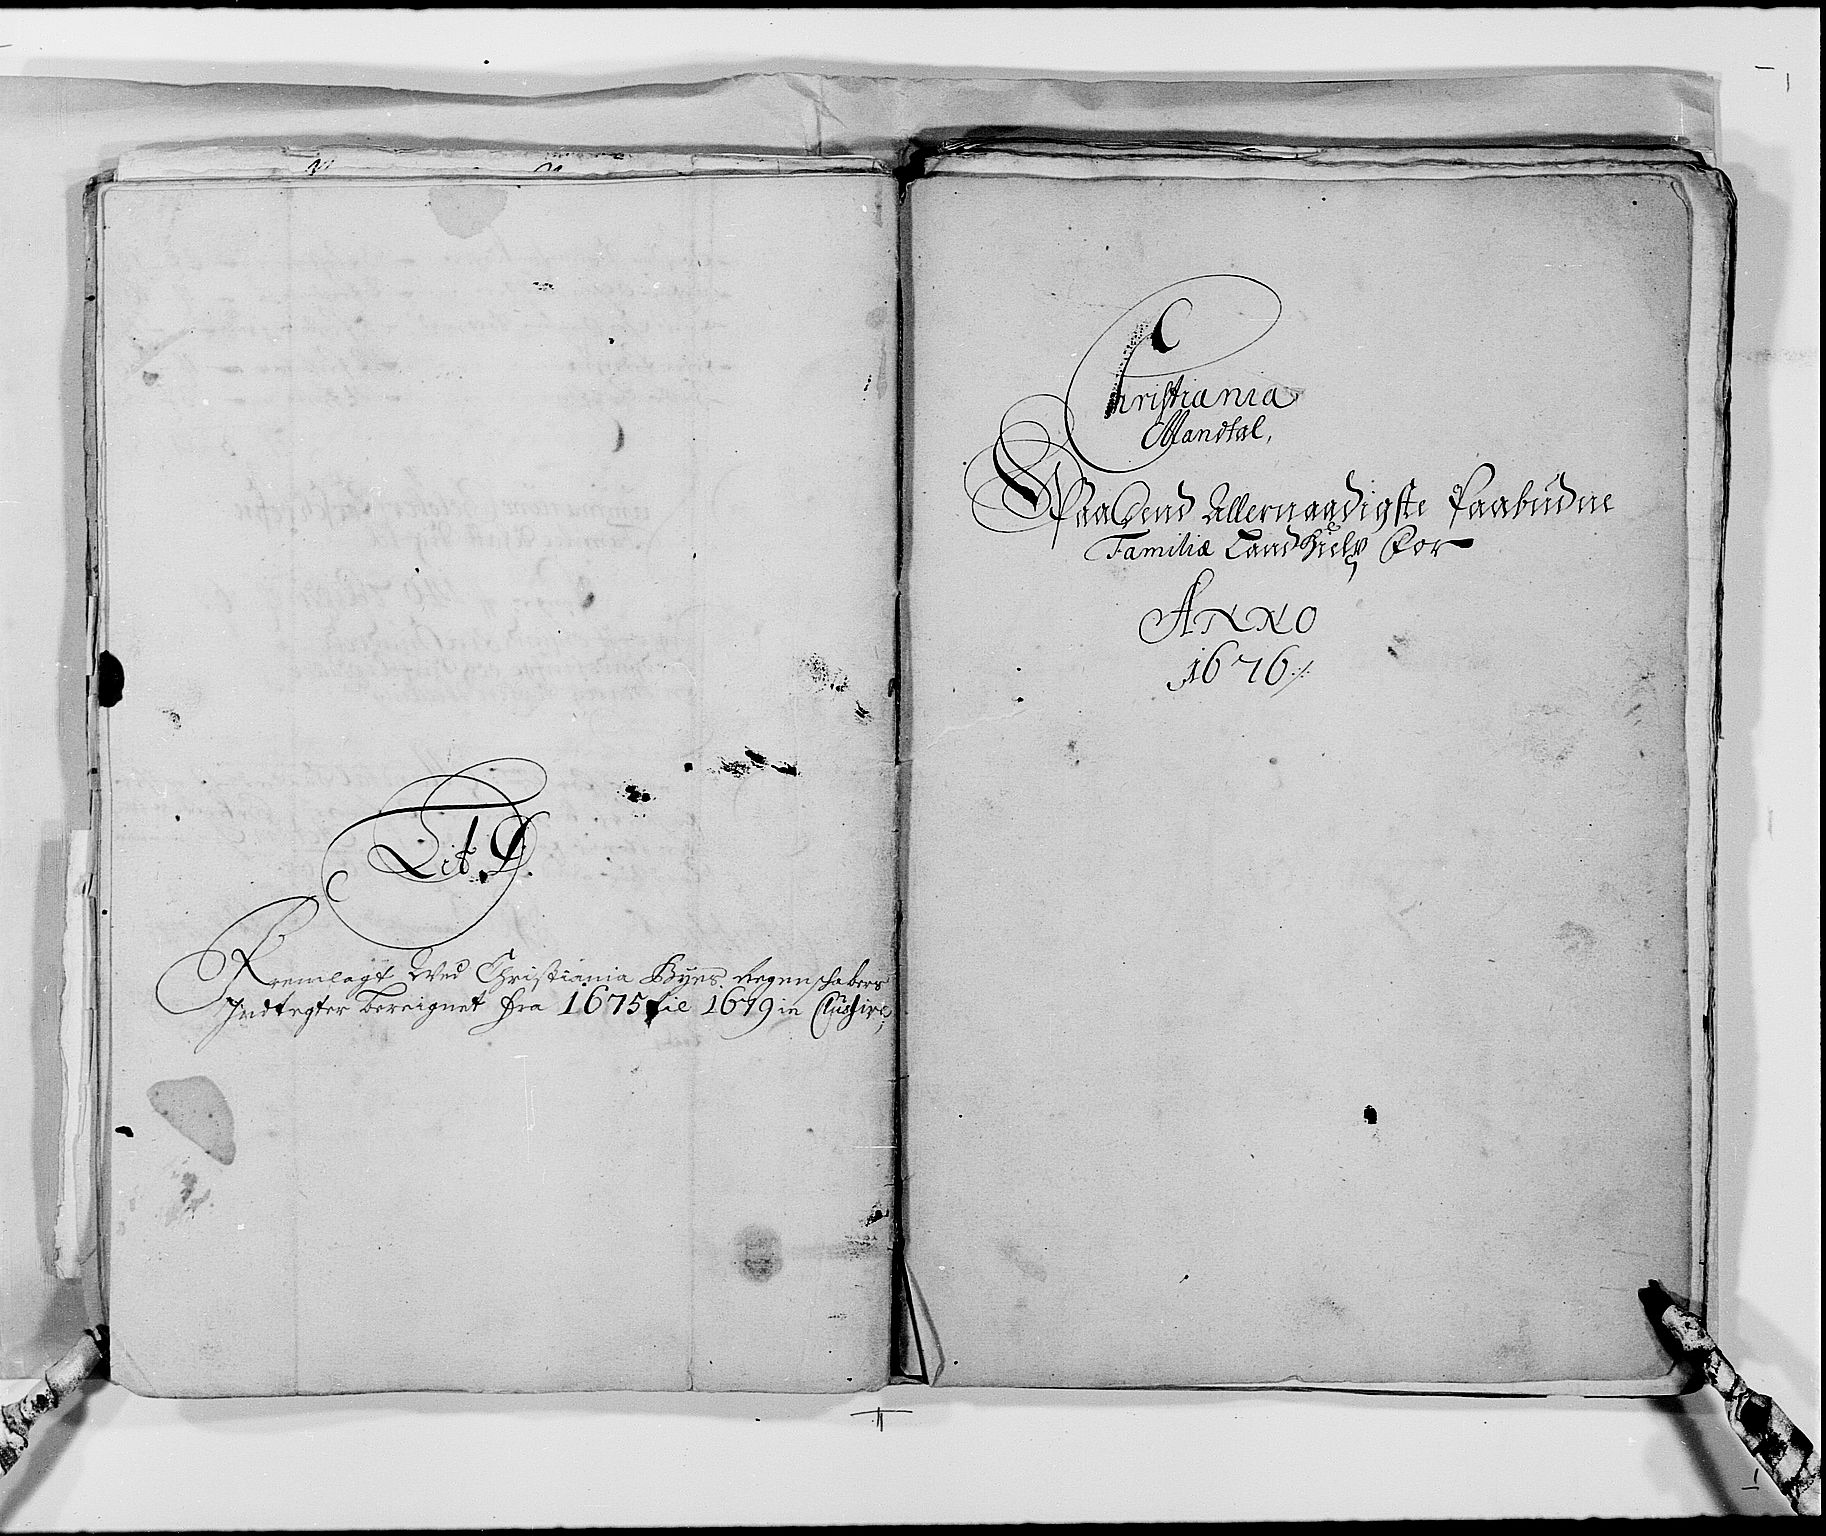 Lit. D.
Fremlagt Wed Christiania Byes Regenschabers
Indtegter bereignet fra 1675 til 1679 incluſive,
Chriſtiania
Mandtal,
Paa Dend Allernaadigſte Paabudne
Familiæ Land Hielp For
ANNO
1676 ./.